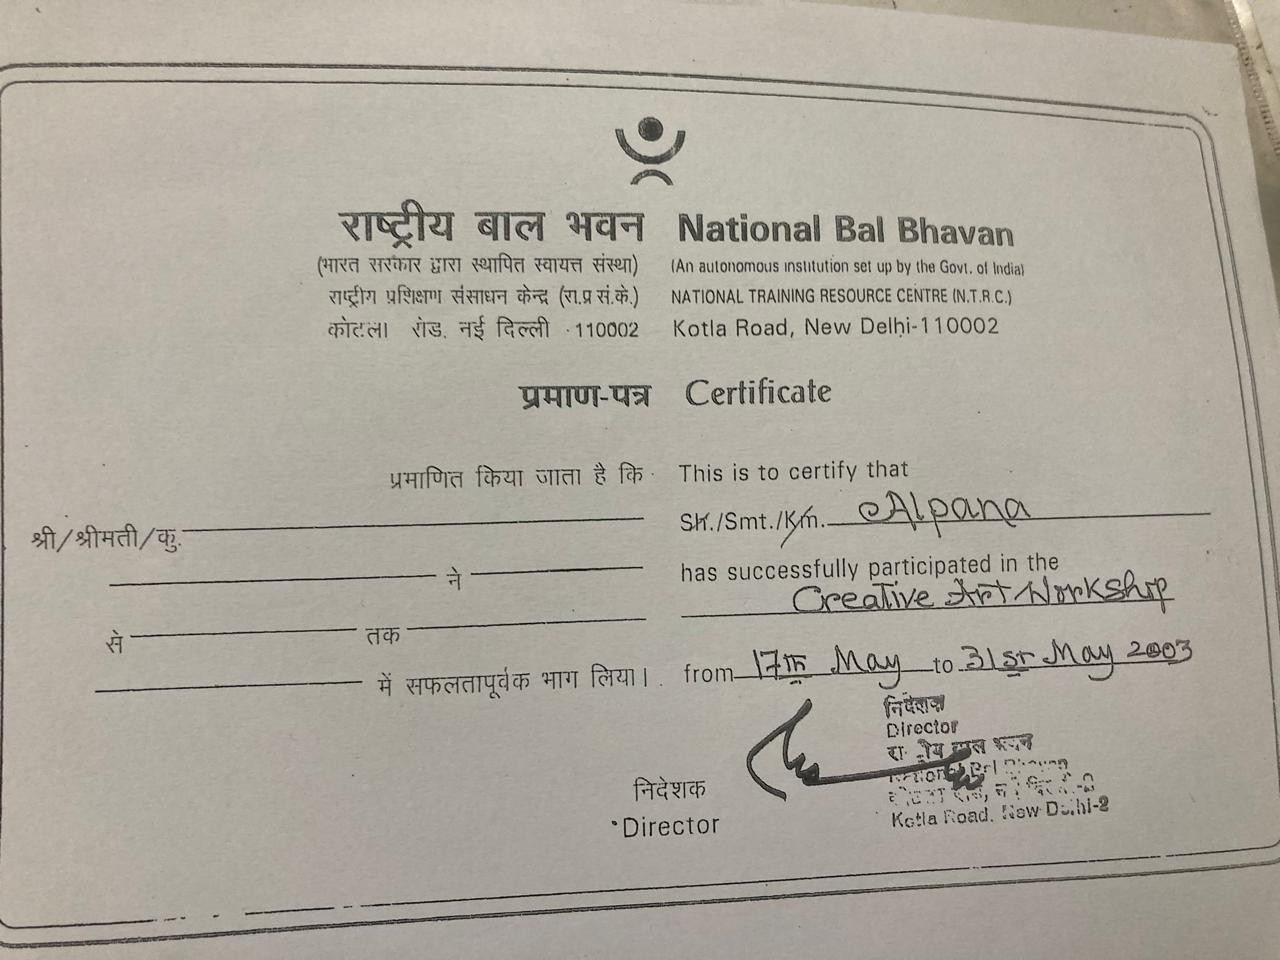 राष्ट्रीय बाल भवन National Bal Bhavan
(भारत सरकार द्वारा स्थापित स्वायत्त संस्था) (An autonomous institution set up by the Govt. of India)
राष्ट्रीय प्रशिक्षण संसाधन केन्द्र (रा.प्र सं.के.) NATIONAL TRAINING RESOURCE CENTRE (N.T.R.C.)
कोटला रोड, नई दिल्ली -110002 Kotla Road, New Delhi-110002
प्रमाण-पत्र Certificate
प्रमाणित किया जाता है कि This is to certify that
श्री/श्रीमती/कु. Sh./Smt./Km. Alpana
ने has successfully participated in the
Creative Art Workshop
से तक
में सफलतापूर्वक भाग लिया। from 17th May to 31st May 2003
निदेशक
Director
राष्ट्रीय बाल भवन
National Bal Bhavan
Kotla Road, New Delhi-2
निदेशक
Director